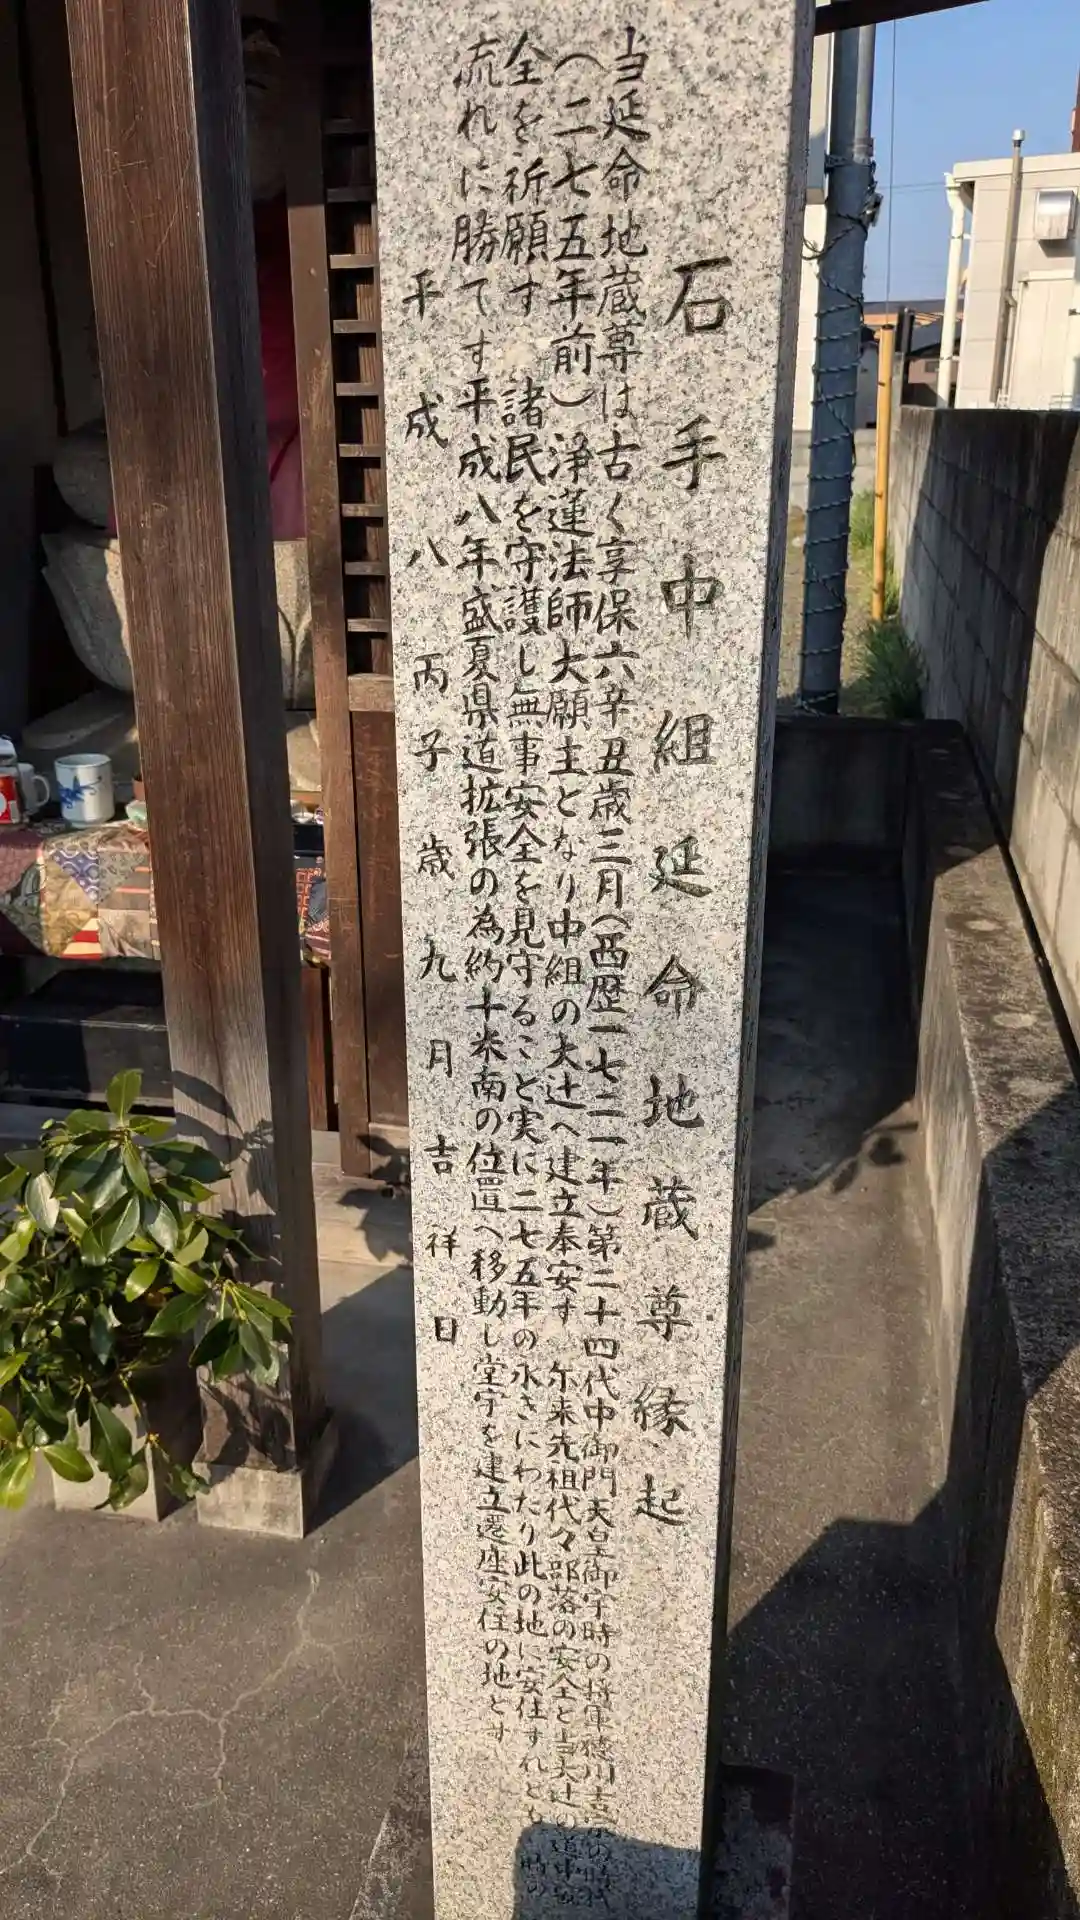 石手中組延命地蔵尊縁起
当延命地蔵尊は古く享保六辛丑歳三月(西歴一七二一年)第二十四代中御門天皇御宇時の将軍徳川吉宗の時代
(二七五年前)浄蓮法師大願主となり中組の大辻へ建立奉安す 尓来先祖代々部落の安全と当大辻の道中安
全を祈願す 諸民を守護し無事安全を見守ること実に二七五年の永きにわたり此の地に安住すれども時の
流れに勝てす平成八年盛夏県道拡張の為約十米南の位置へ移動し堂宇を建立遷座安住の地とす
平成八丙子歳九月吉祥日